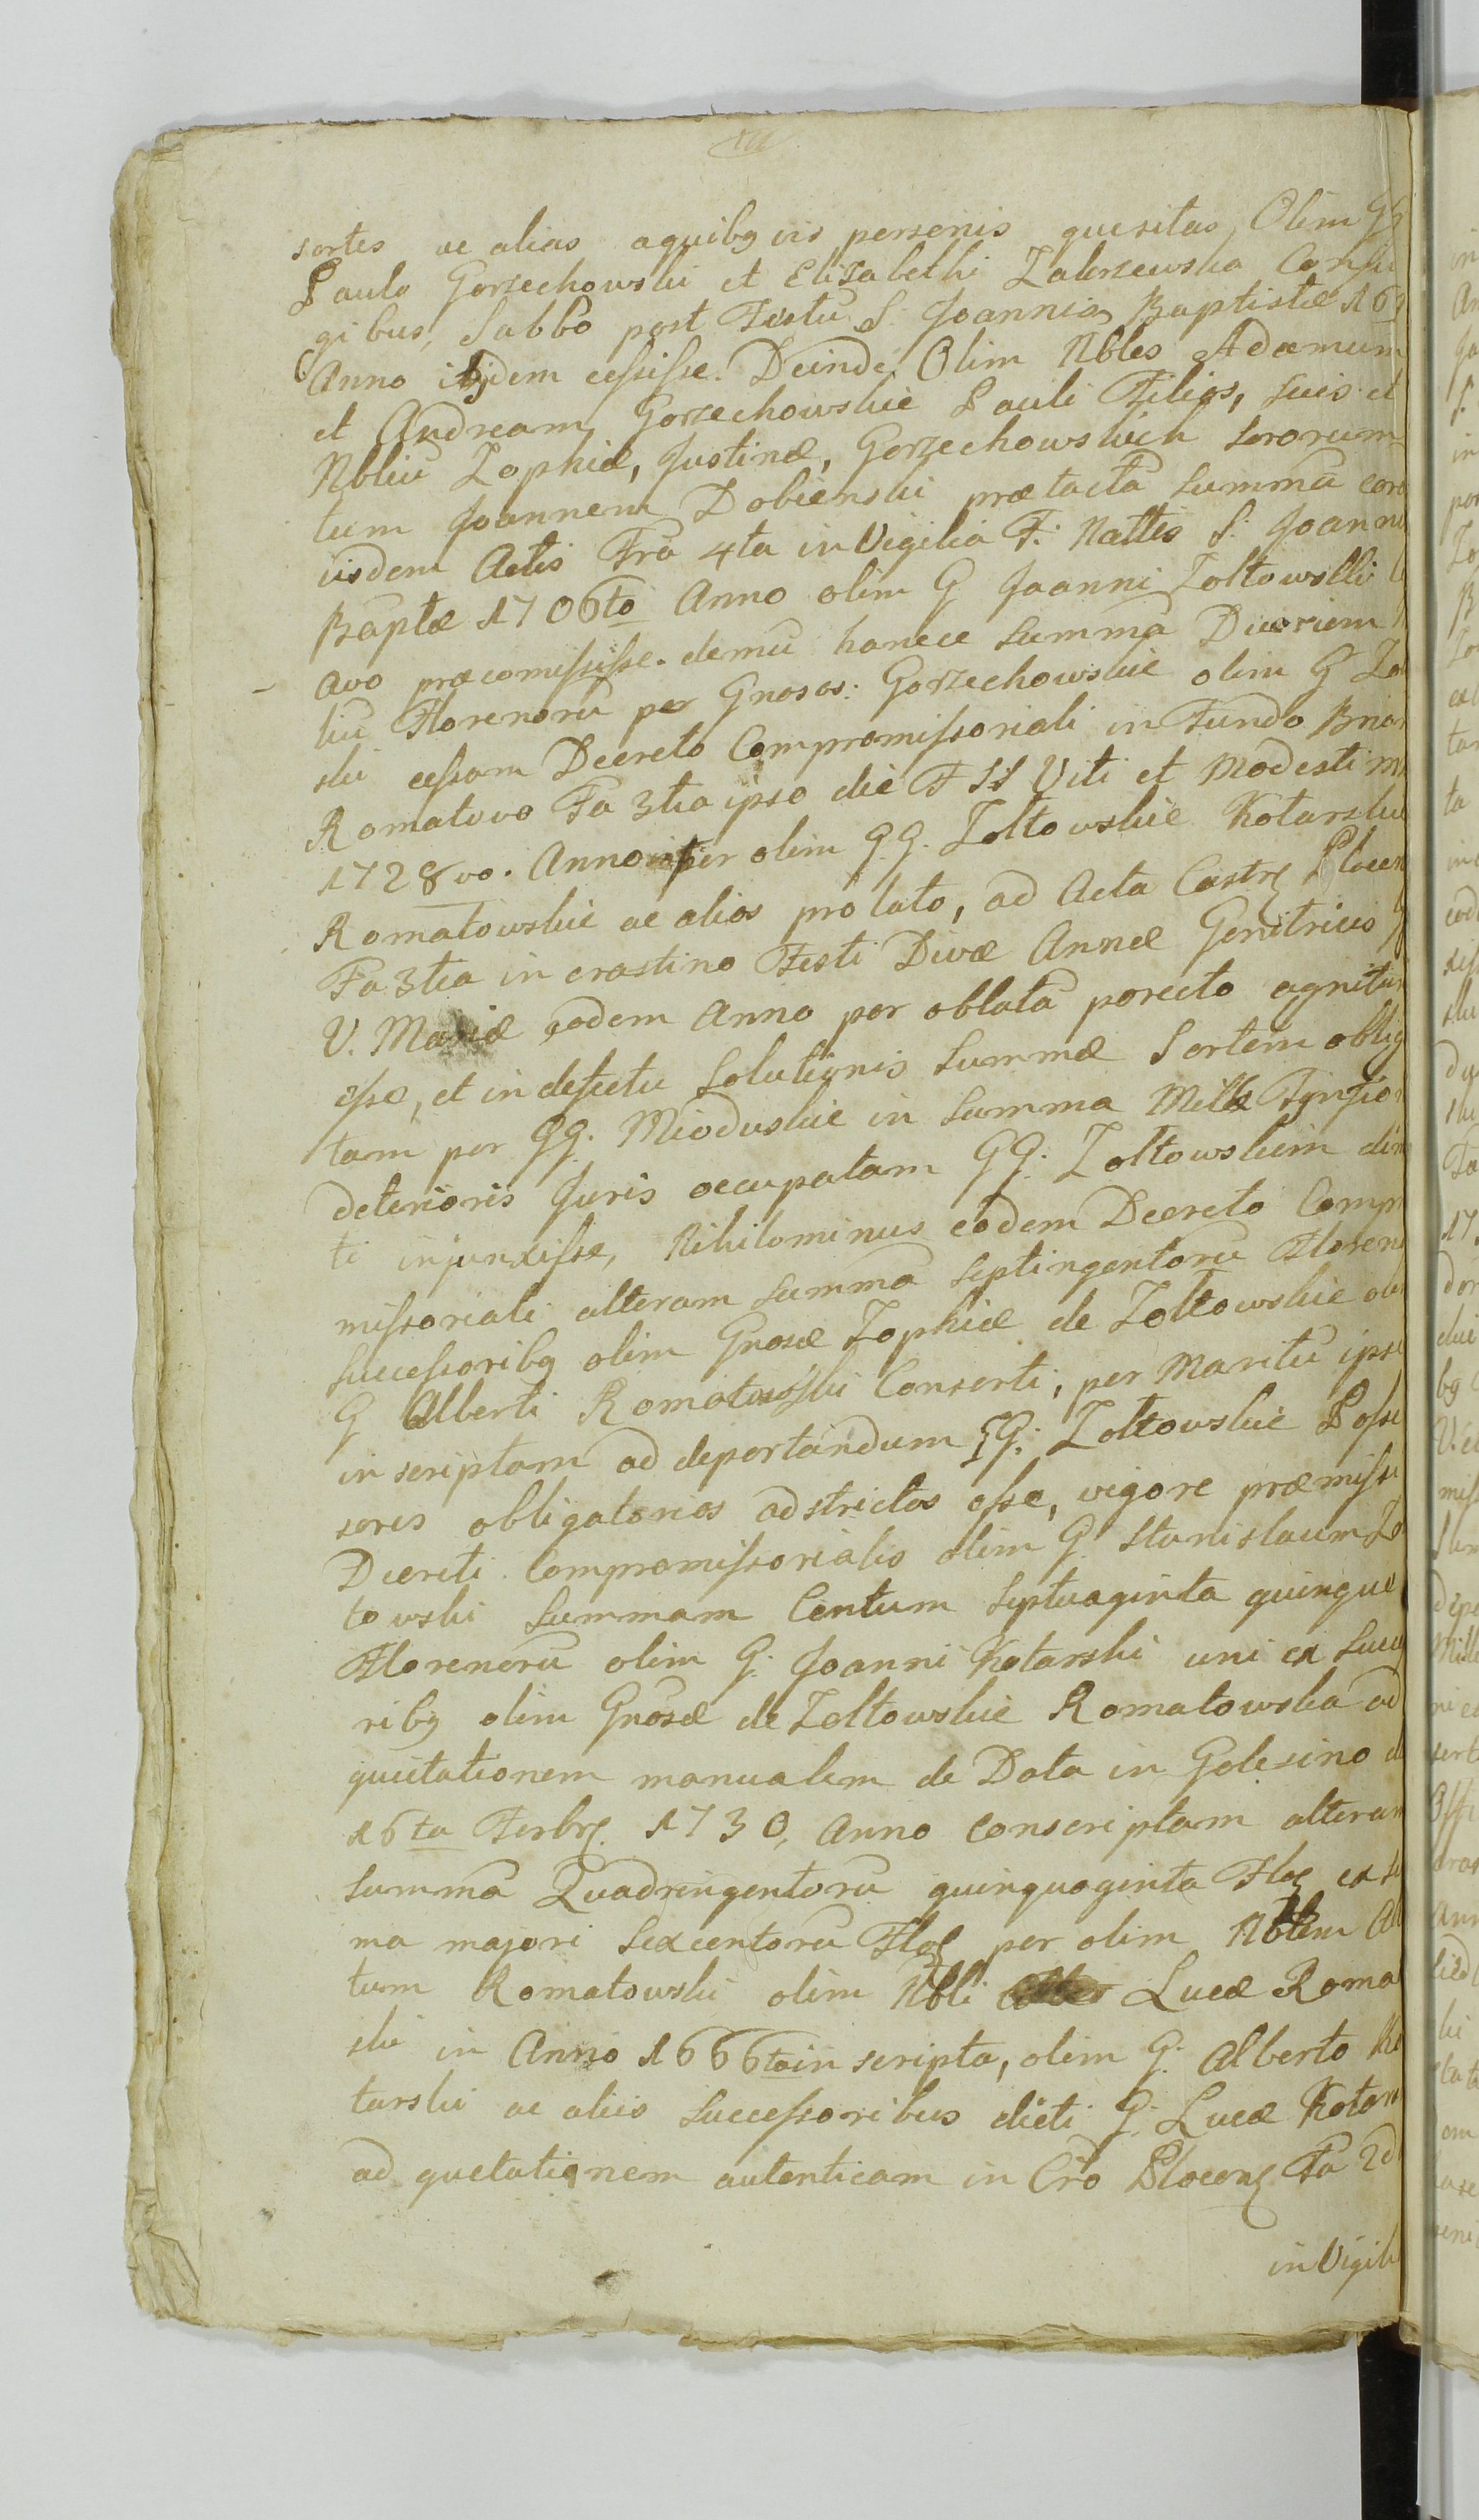 sortes ac alias aquibg vis personis quesitas Olim GG
Paulo Gorzechowski et Elisabethi Zalerzewska Conju
gibus, Sabbo post Festu S. Joannis Baptistæ 16
Anno ibidem cessisse. Deinde Olim Nbles Adamum
et Andream Gorzechowskie Pauli Filios, suis et
Nbliu Zophiæ, Justinæ, Gorzechowskich Sororum
tum Joannem Dobienski prætacta Summa cora
iisdem Actis Fra 4ta in Vigilia F: Nattis S: Joannis
Baptæ 1706to Anno olim G Joanni Zoltowski
Avo præcomississe. demu hance Summa Ducriem
liu Florenoru per Gnosos: Gorzechowskie olim G Zol
ski cessam Decreto Compromissoriali in Fundo Bno
Romatowo Fa 3tia ipso die F SS Viti et Modesti m
1728vo. Anno per olim GG. Zoltowskie Kotarskie
Romatowskie ac alios prolato, ad Acta Castr Plocen
Fa 3tia in crastino Festi Divæ Annæ Genitricis
V. Mariæ eodem Anno per oblata porrecto agnitu
esse, et in defectu Solutionis Summæ Sortem oblig
tam per GG. Mioduskie in Summa Mille Tynfio
deterioris Juris occupatam GG. Zoltowskim dim
ti injunxisse, Nihilominus eodem Decreto Comp
missoriali alteram Summa Septingentoru Floren
Successoribg olim Gnosæ Zophiæ de Zoltowskie ol
G Alberti Romatowski Consorti, per Maritu ips
inscriptam ad deportandum GG: Zoltowskie Posse
sores obligatorios adstrictos esse, vigore præmissi
Decreti Compromissorialis olim G. Stanislaum Zo
towski Summam Centum Septuaginta quinque
Florenoru olim G. Joanni Kotarski uni ex Succ
ribg olim Gnosæ de Zoltowskie Romatowska ad
quietationem manualem de Data in Golesino d
16ta Ferbr 1730, Anno conscriptam alteram
Summa Quadringentoru quinquaginta Flor ex S
ma majori Sexcentoru Flor per olim Nblem Al
tum Romatowski olim Nbli Lucæ Roma
ski in Anno 1666to inscripta, olim G. Alberto Ko
tarski ac aliis Successoribus dicti G. Lucæ Kotar
ad quetationem autenticam in Cro Plocen Fa 2d
in Vigili